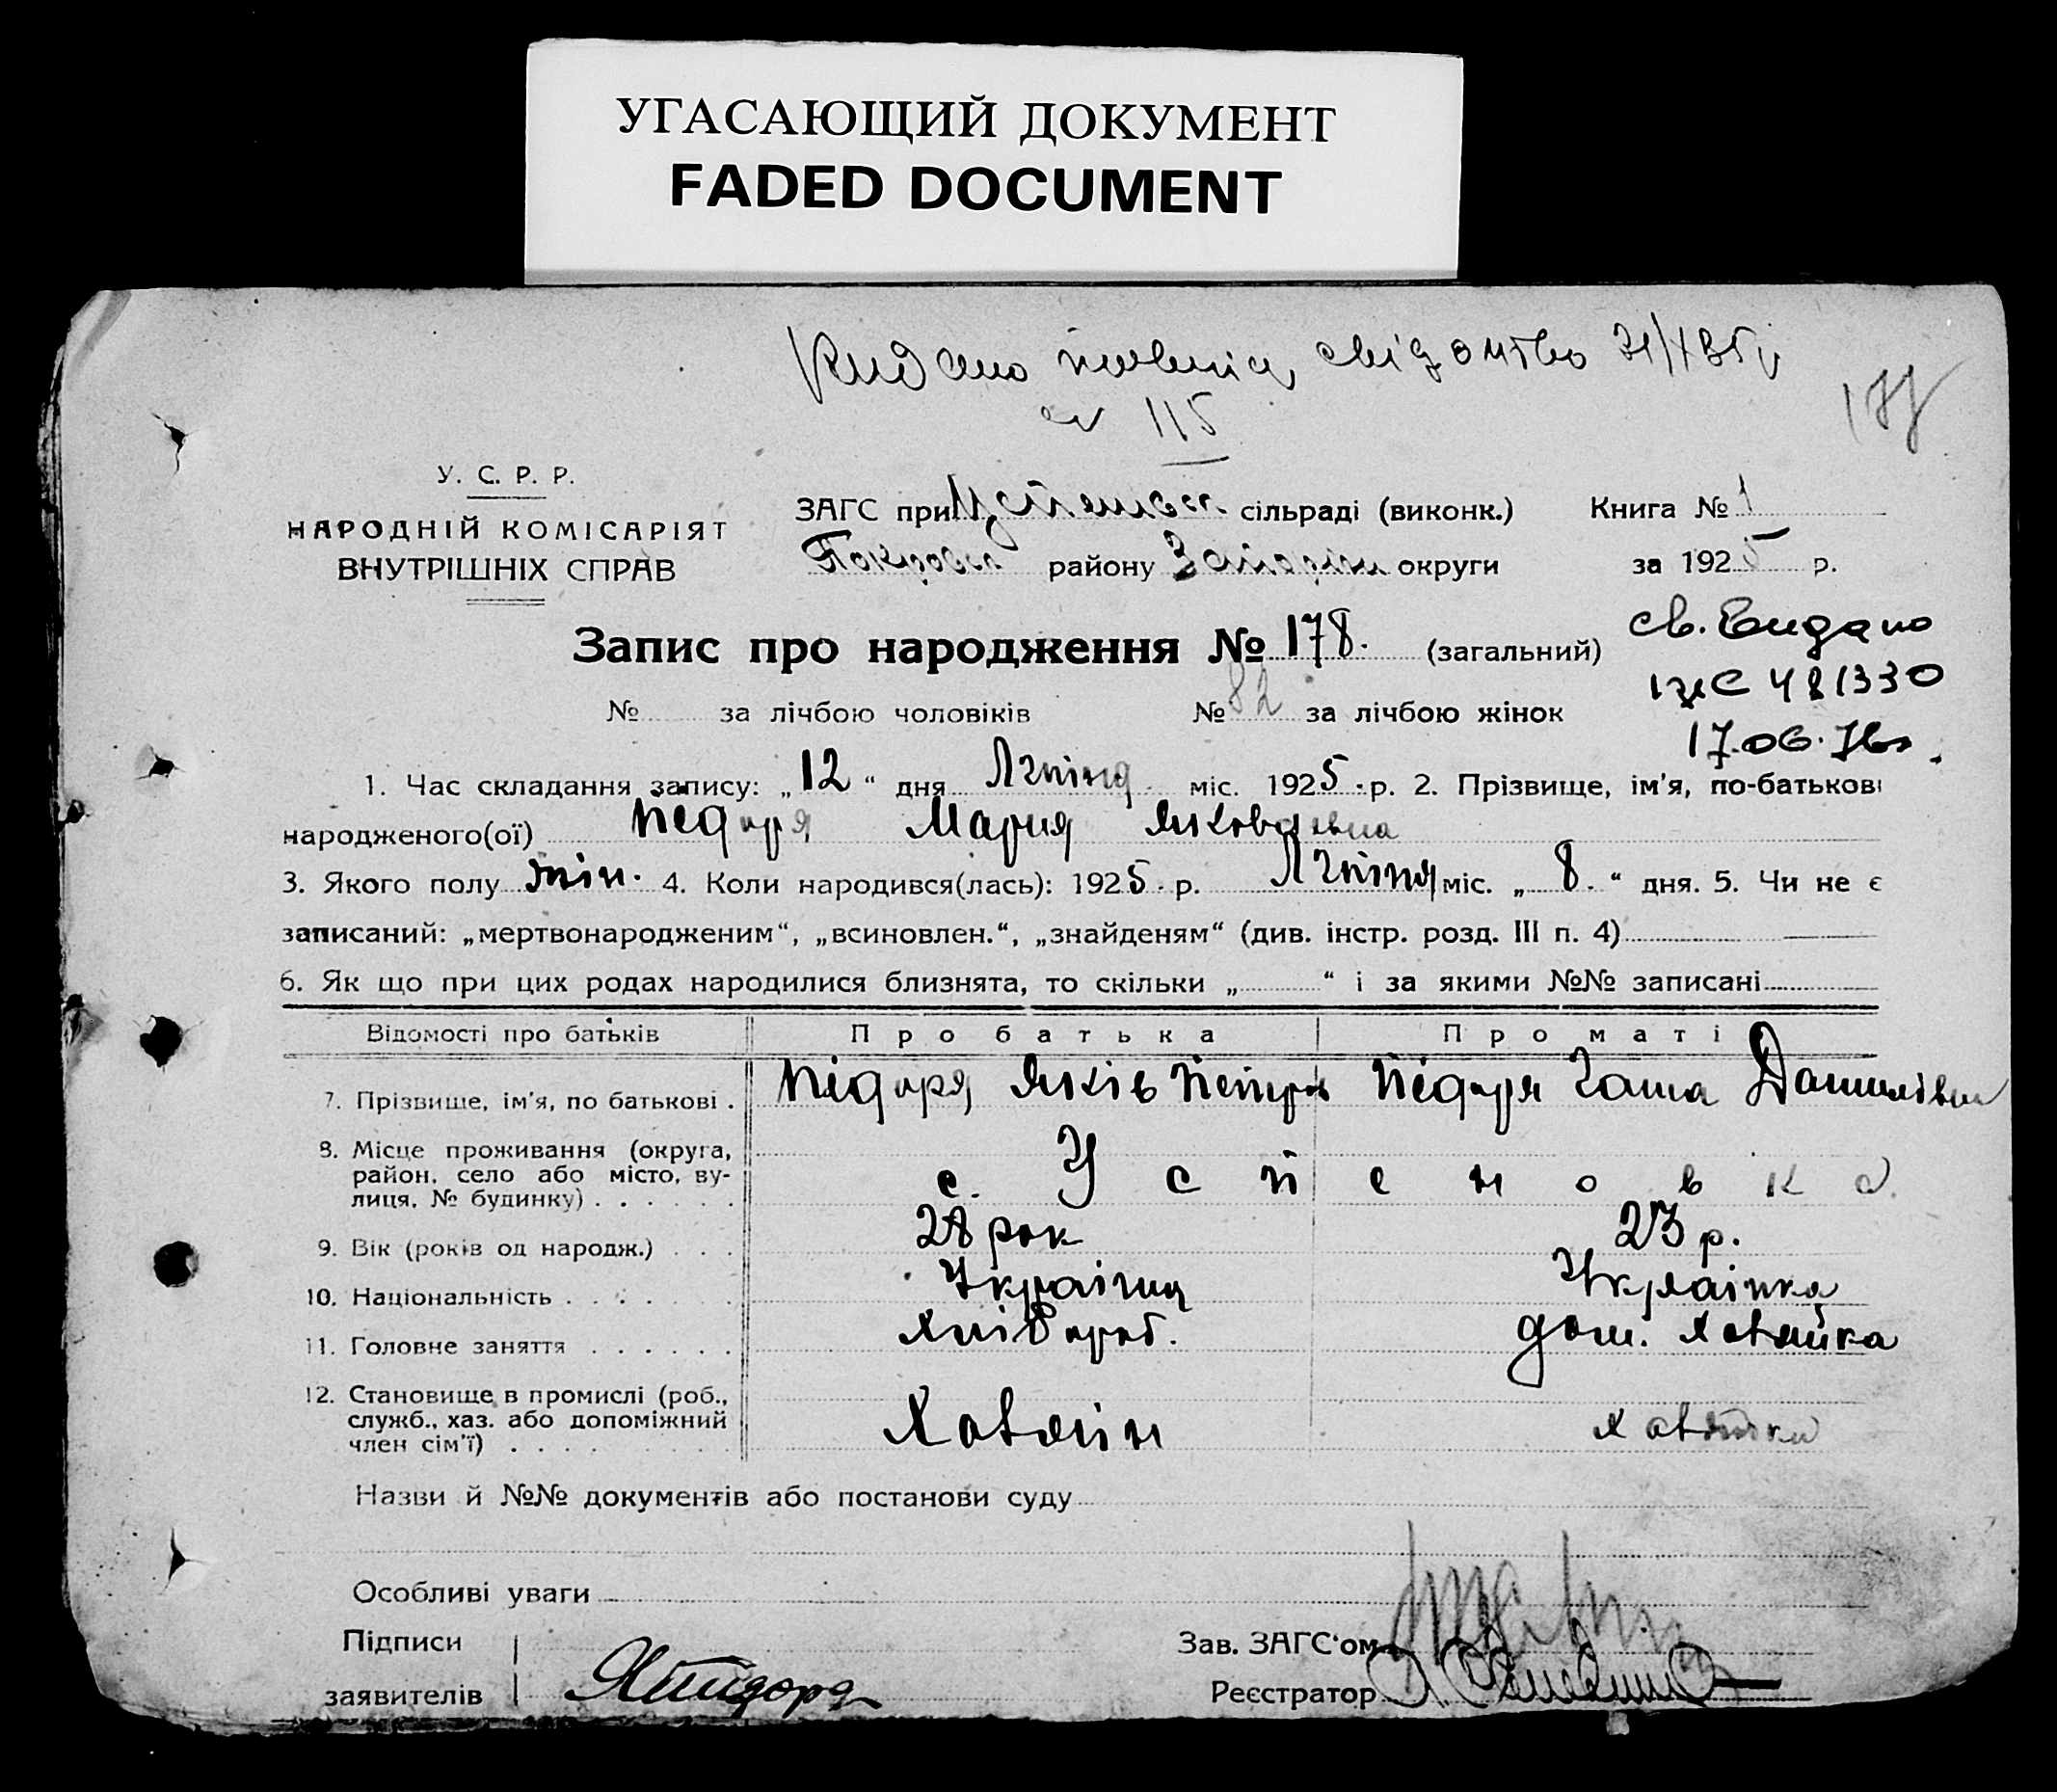 УГАСАЮЩИЙ ДОКУМЕНТ
FADED DOCUMENT
свідоцтво
№ 115
У. С. Р. Р.
НАРОДНІЙ КОМІСАРІЯТ
ВНУТРІШНІХ СПРАВ
ЗАГС при Успеновск. сільраді (виконк.) Книга № 1
Покровск району Запоріж округи за 1925 р.
Запис про народження № 178. (загальний)
св. видано
481330
17.06.76
№ за лічбою чоловіків № 82 за лічбою жінок
1. Час складання запису: „12“ дня Липня міс. 1925 р. 2. Прізвище, ім'я, по-батькові
народженого(ої) Підоря Мария Яковлевна
3. Якого полу жін. 4. Коли народився(лась): 1925. р. Липня міс. „8.“ дня. 5. Чи не є
записаний: „мертвонародженим“, „всиновлен.“, „знайденям“ (див. інстр. розд. III п. 4)
6. Як що при цих родах народилися близнята, то скільки „ “ і за якими №№ записані
Відомості про батьків Про батька Про маті
7. Прізвише, ім'я, по батькові . Підоря Яків Петров Підоря Данилівна
8. Місце проживання (округа,
район, село або місто, ву-
лиця, № будинку) . . . . . . с. Успеновка
9. Вік (років од народж.) . . . 28 рок 23 р.
10. Національність . . . . . . . Українц Українка
11. Головне заняття . . . . . . Хлібороб. дом. Хазяйка
12. Становище в промислі (роб.,
служб., хаз. або допоміжний
член сім'ї) . . . . Хазяїн Хазяйка
Назви й №№ документів або постанови суду
Особливі уваги
Підписи Зав. ЗАГС'ом
заявителів ЯПидоря Реєстратор